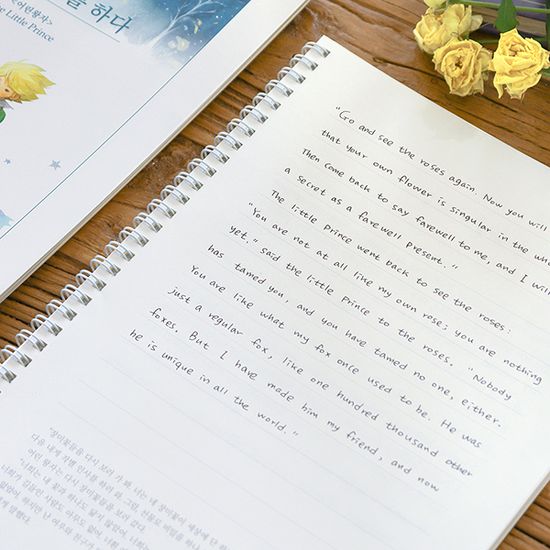 하다
<어린왕자>
The Little Prince
"Go and see the roses again. Now you will
that your own flower is singular in the who
Then come back to say farewell to me, and I will
a secret as a farewell present."
The little Prince went back to see the roses:
"You are not at all like my own rose; you are nothing
yet." said the little Prince to the roses. "Nobody
has tamed you, and you have tamed no one, either.
You are like what my fox once used to be. He was
just a regular fox, like one hundred thousand other
foxes. But I have made him my friend, and now
he is unique in all the world."
"장미꽃들을 다시 보러 가 봐. 너는 네 장미꽃이 세상에 단 하
다음 내게 작별 인사를 하러 와. 그럼, 선물로 비밀을 하나
어린 왕자는 다시 장미꽃들을 보러 갔다.
"너희는 내 꽃과 하나도 닮지 않았어. 너희는